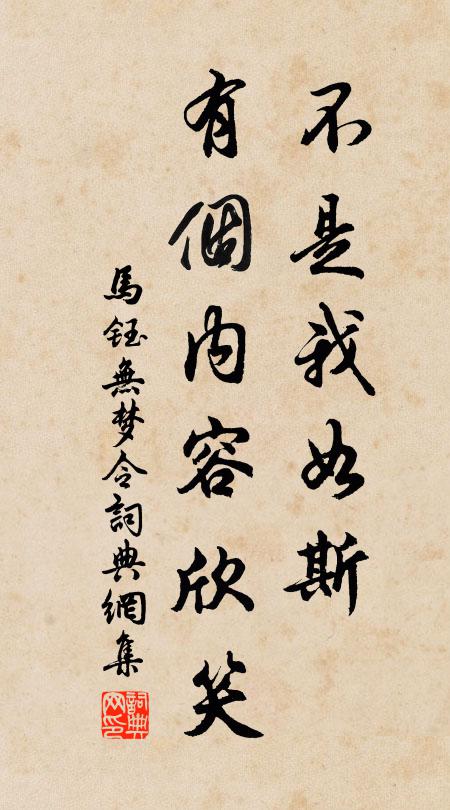 不是我如斯
有個内容欣笑
馬鈺無梦令詞典網集
詞典网印